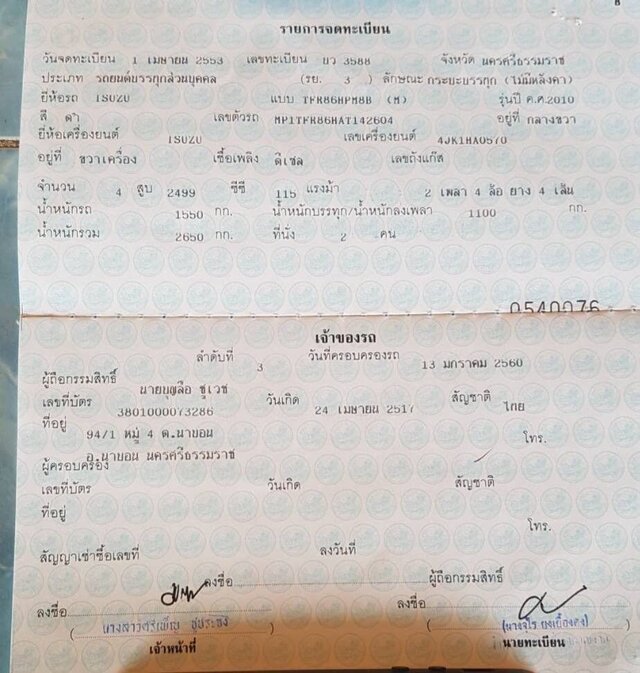 รายการจดทะเบียน
วันจดทะเบียน 1 เมษายน 2553 เลขทะเบียน บว 3588 จังหวัด นครศรีธรรมราช
ประเภท รถยนต์บรรทุกส่วนบุคคล (รย. 3 ) ลักษณะ กระบะบรรทุก (ไม่มีหลังคา)
ยี่ห้อรถ ISUZU แบบ TFR86HPM8B (M) รุ่นปี ค.ศ.2010
สี ดำ เลขตัวรถ MP1TFR86HAT142604 อยู่ที่ กลางขวา
ยี่ห้อเครื่องยนต์ ISUZU เลขเครื่องยนต์ 4JK1HA0570
อยู่ที่ ขวาเครื่อง เชื้อเพลิง ดีเซล เลขถังแก๊ส
จำนวน 4 สูบ 2499 ซีซี 115 แรงม้า 2 เพลา 4 ล้อ ยาง 4 เส้น
น้ำหนักรถ 1550 กก. น้ำหนักบรรทุก/น้ำหนักลงเพลา 1100 กก.
น้ำหนักรวม 2650 กก. ที่นั่ง 2 คน
0540076
เจ้าของรถ
ลำดับที่ 3 วันที่ครอบครองรถ 13 มกราคม 2560
ผู้ถือกรรมสิทธิ์ นายบุญลือ ชูเวช
เลขที่บัตร 3801000073286 วันเกิด 24 เมษายน 2517 สัญชาติ ไทย
ที่อยู่ 94/1 หมู่ 4 ต.นาบอน โทร.
อ.นาบอน นครศรีธรรมราช
ผู้ครอบครอง
เลขที่บัตร วันเกิด สัญชาติ
ที่อยู่
โทร.
สัญญาเช่าซื้อเลขที่ ลงวันที่
ลงชื่อ ผู้ถือกรรมสิทธิ์
ลงชื่อ ลงชื่อ
เจ้าหน้าที่ นายทะเบียน